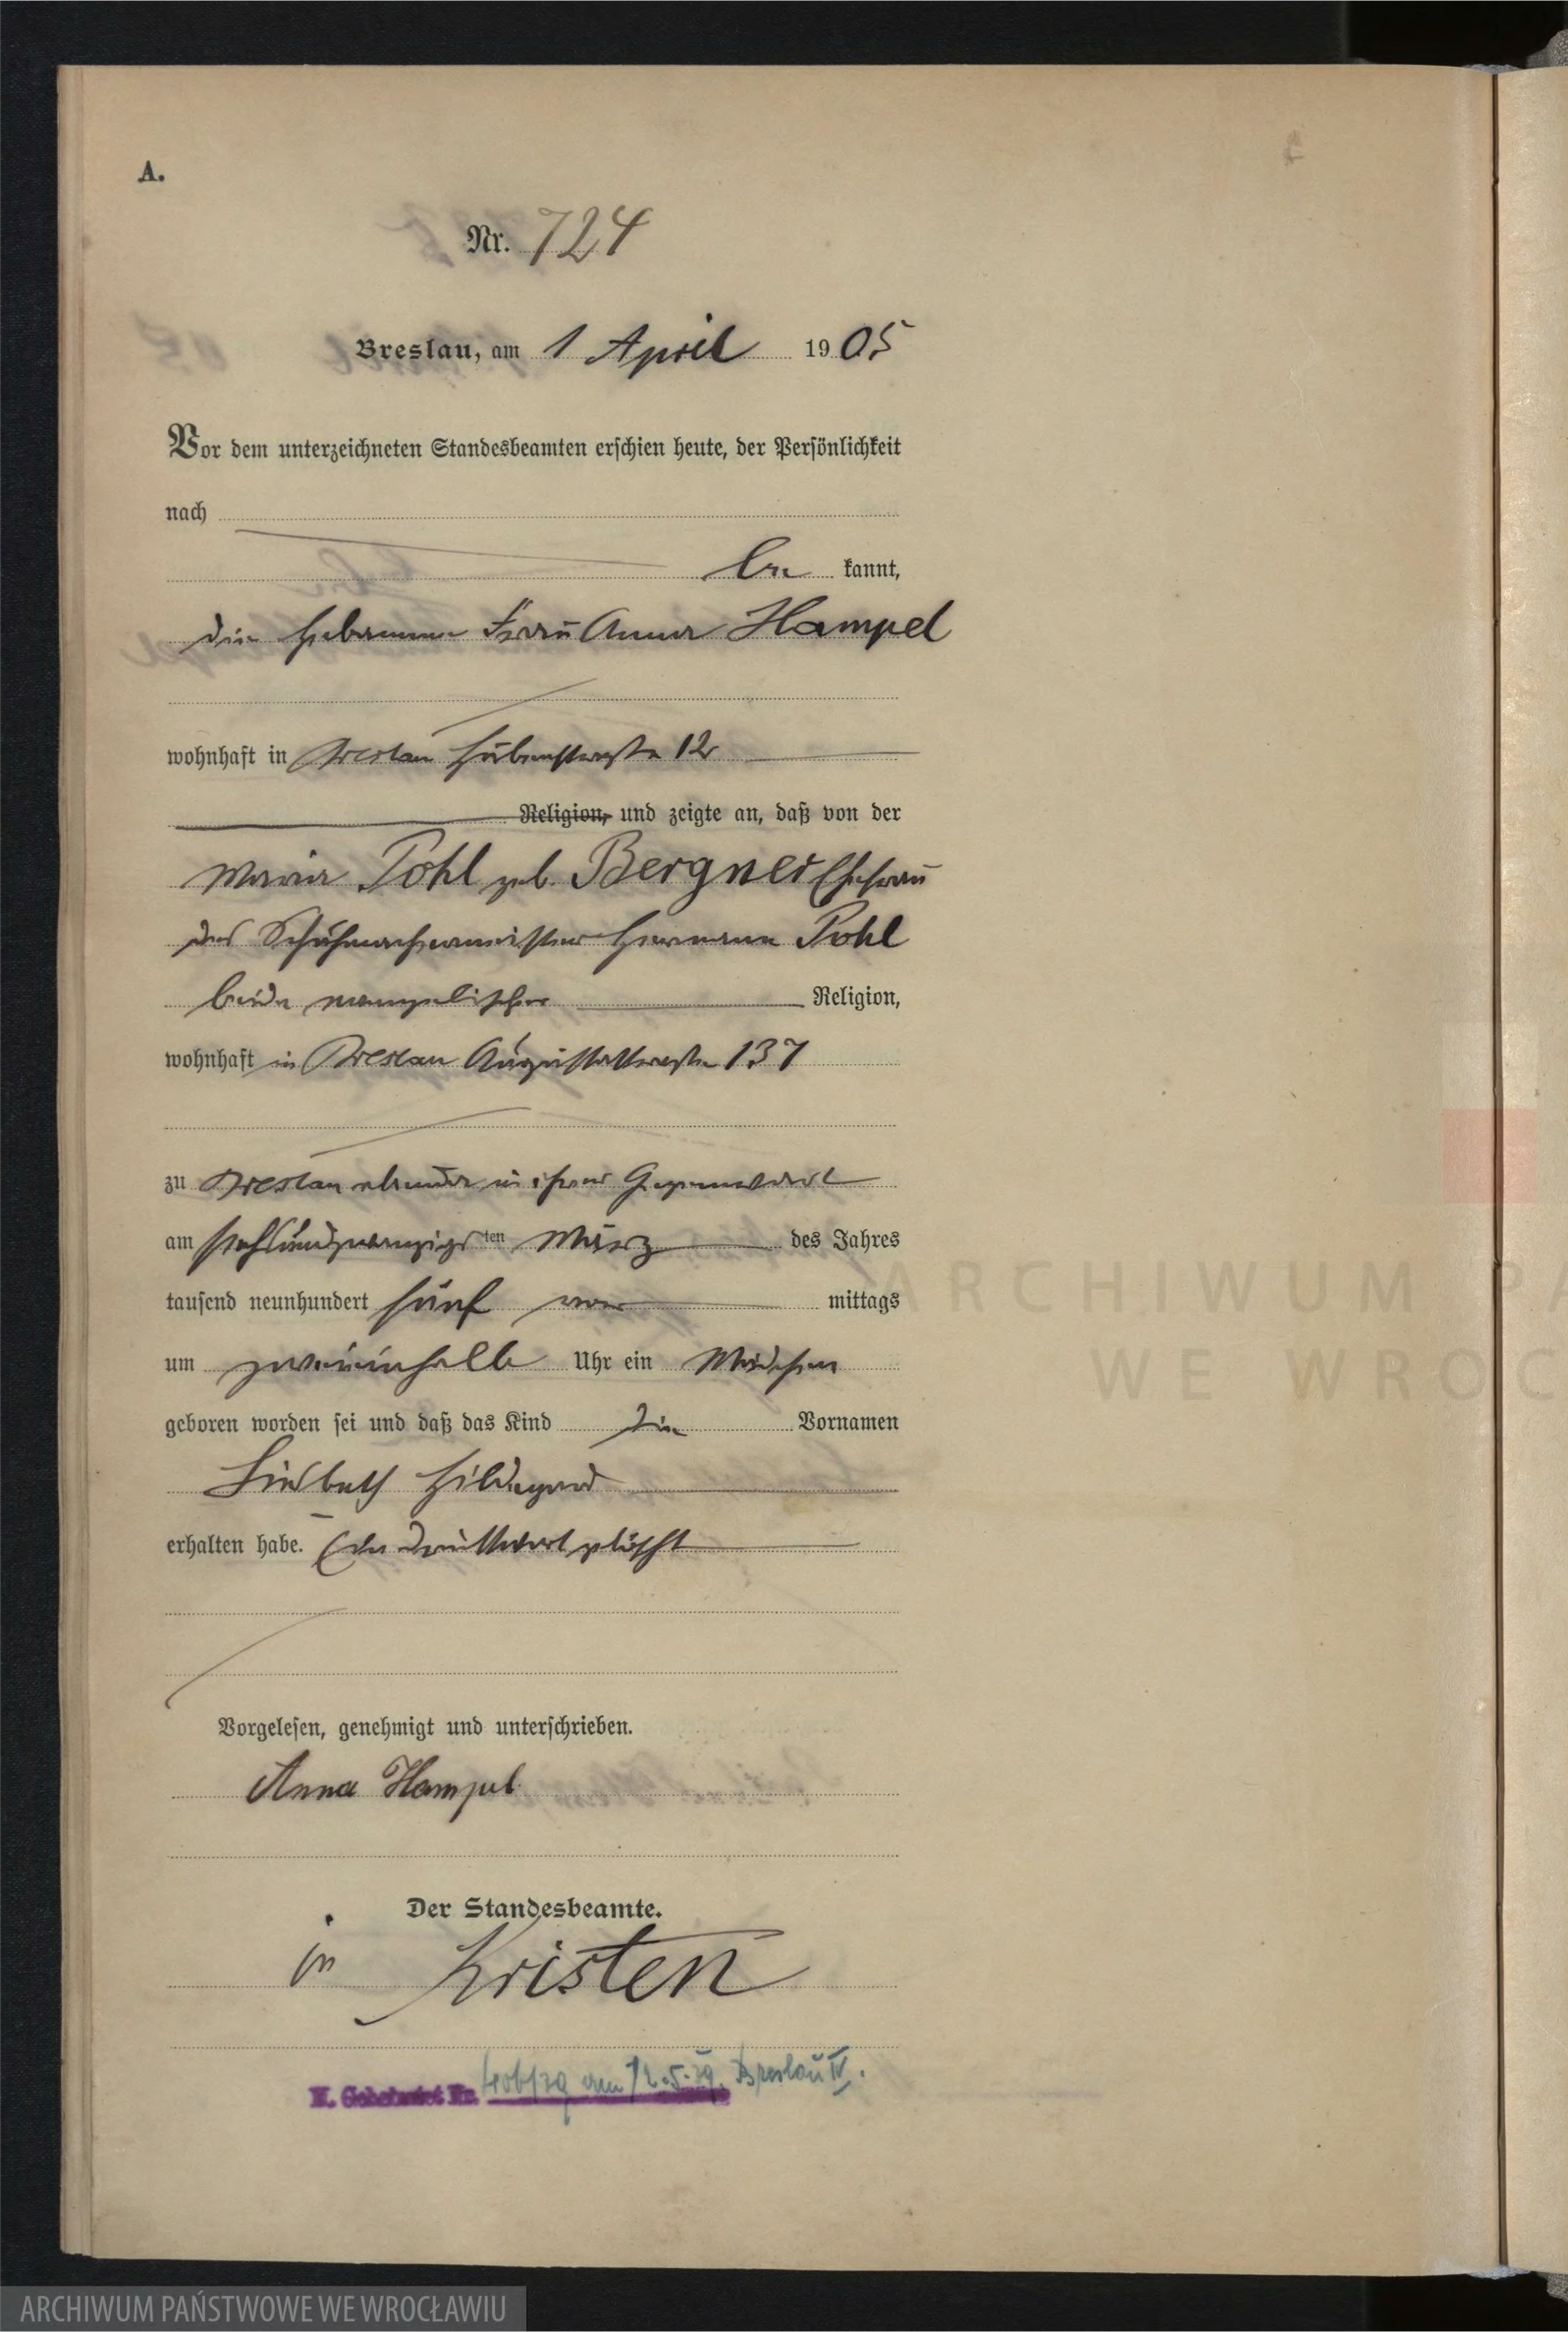 A.
Nr. 724
Breslau, am 1 April 1905
Vor dem unterzeichneten Standesbeamten erschien heute, der Persönlichkeit
nach
be kannt,
die Hebamme Frau Anna Hampel
wohnhaft in Breslau Hubenstraße 12
Religion, und zeigte an, daß von der
Maria Pohl geb. Bergner Ehefrau
des Schuhmachermeister Hermann Pohl
beide evangelischer Religion,
wohnhaft in Breslau Augustastraße 137
zu Breslau ebenda in ihrer Gegenwart
am sechsundzwanzigsten März des Jahres
tausend neunhundert fünf vor mittags
um zweieinhalb Uhr ein Mädchen
geboren worden sei und daß das Kind die Vornamen
Liesbeth Hildegard
erhalten habe. Ein Druckwort gelöscht
Vorgelesen, genehmigt und unterschrieben.
Anna Hampel
Der Standesbeamte.
Kristen
am 12.5. Breslau IV.
ARCHIWUM PA
WE WROC
ARCHIWUM PAŃSTWOWE WE WROCŁAWIU